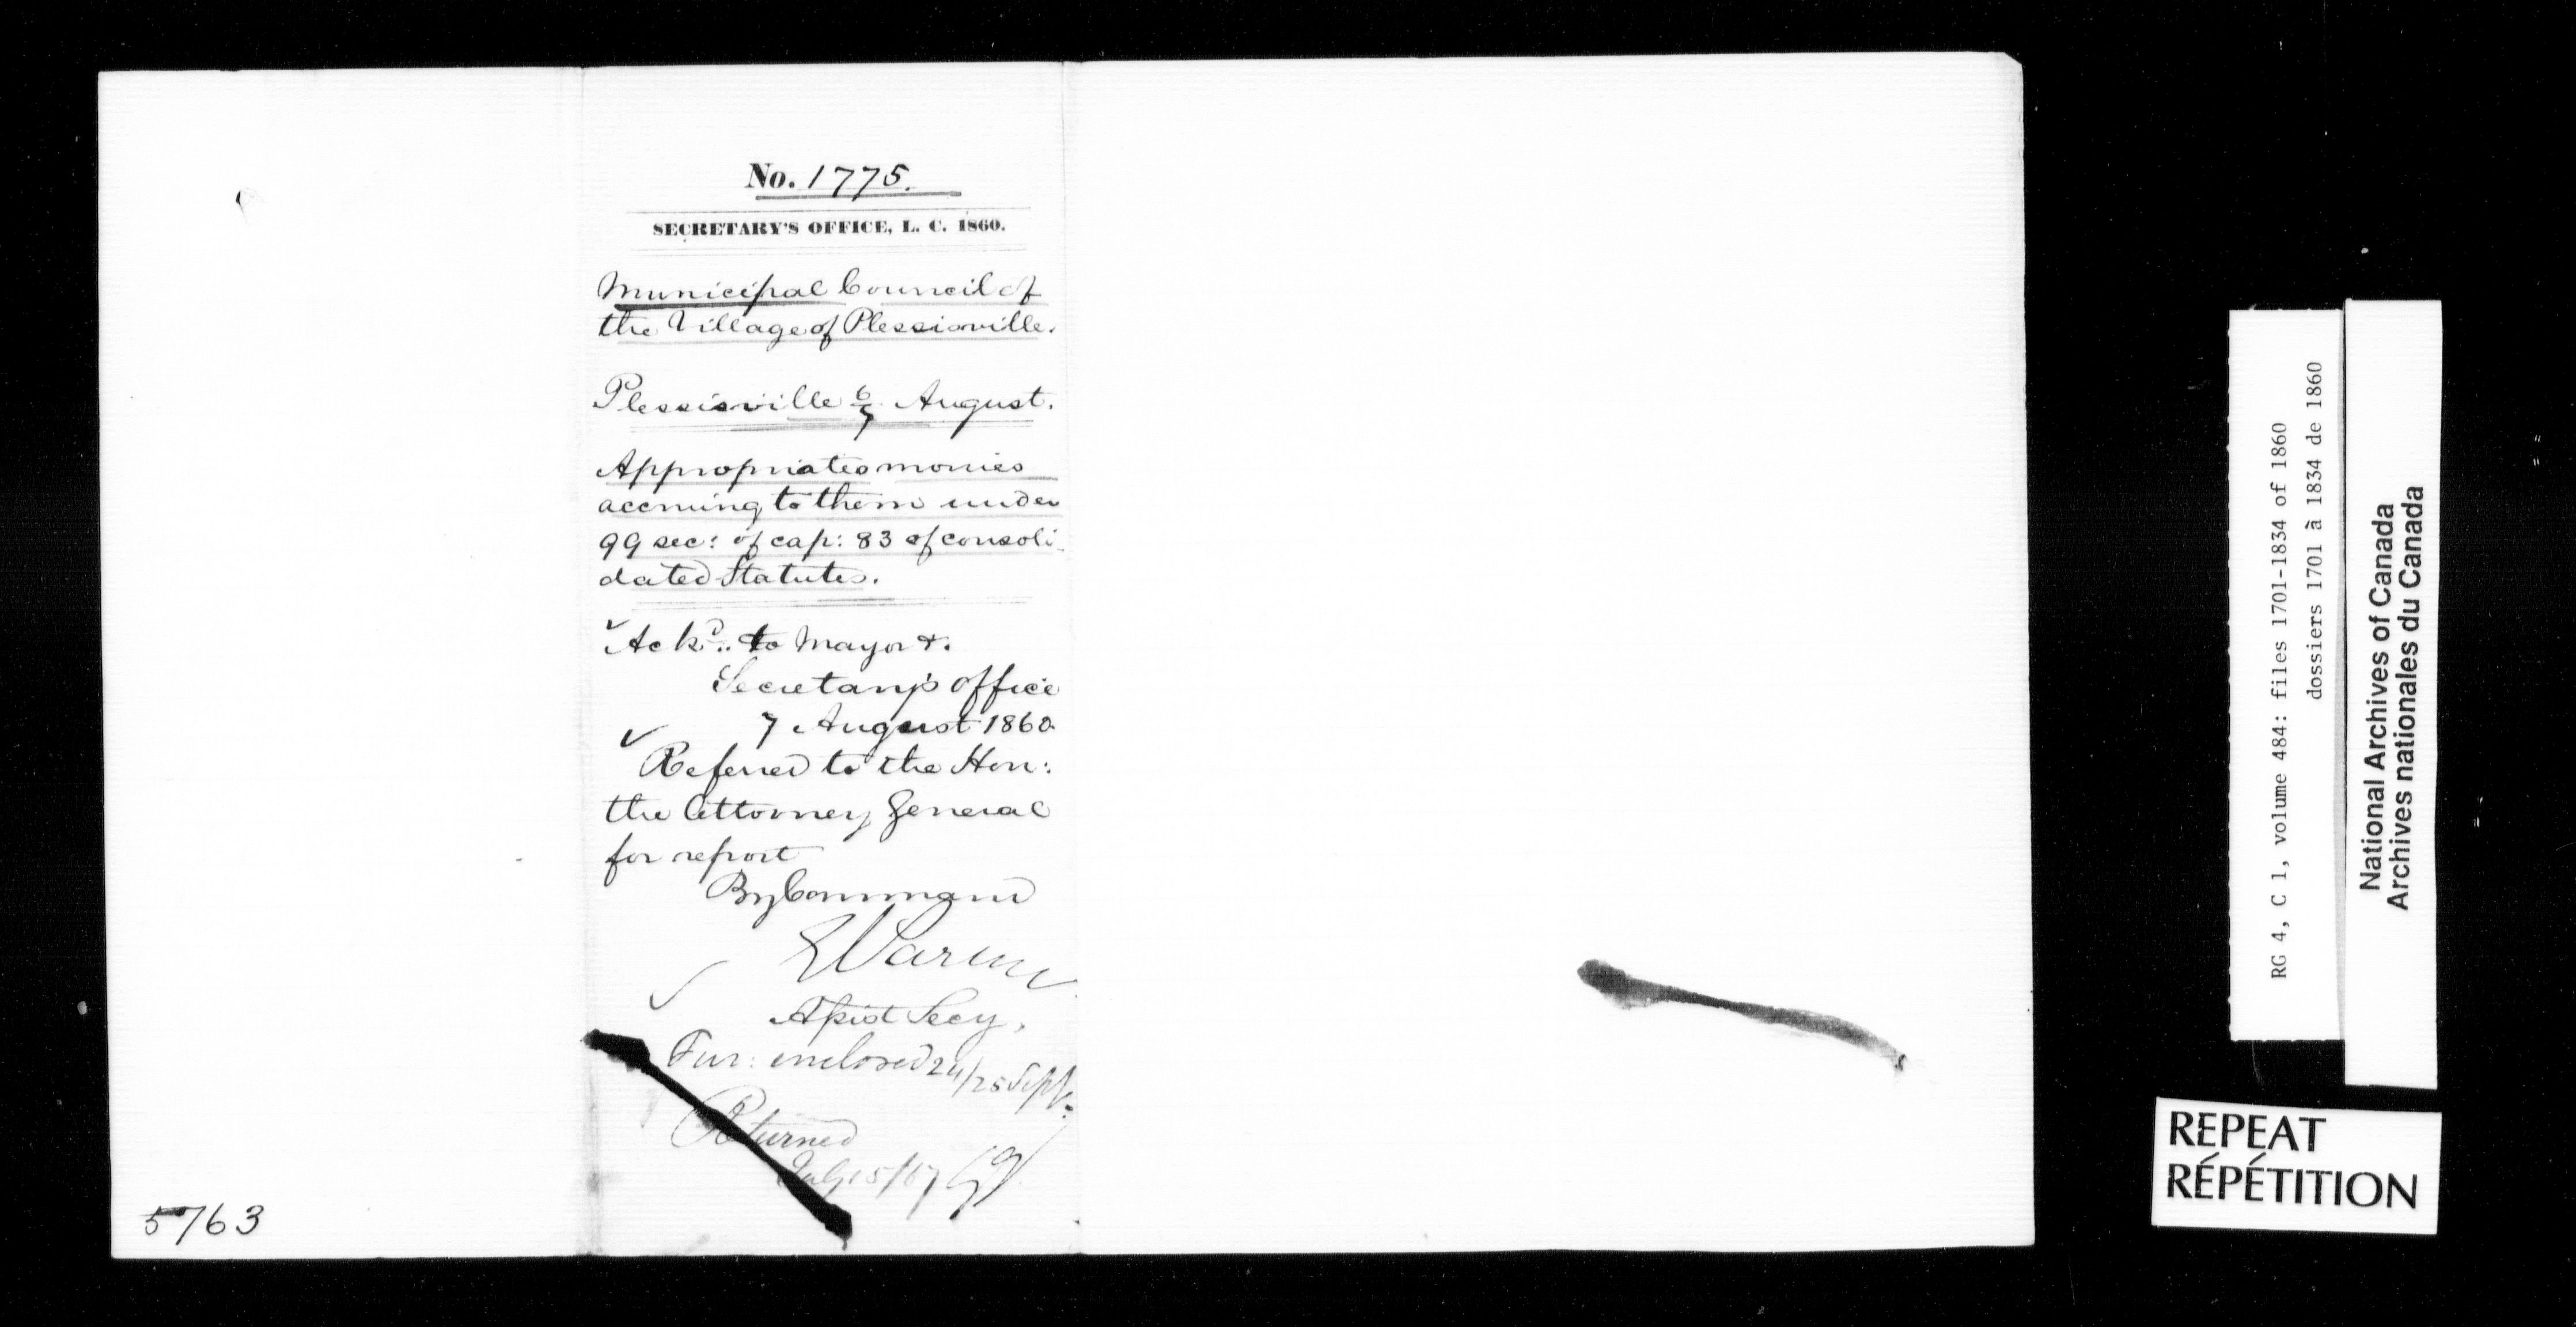 No. 1775.
SECRETARY'S OFFICE, L. C. 1860.
Municipal Council of
the Village of Plessisville.
Plessisville 6/7 August.
Appropriates monies
accruing to them under
99 sec: of cap: 83 of consoli-
dated Statutes.
Ackd.. to Mayor &.
Secretary's office
7 August 1860
Referred to the Hon:
the Attorney General
for report
By Command
E Parent
Assist Secy.
Fur: enclosed 24/25 Sept.
Returned
5763
RG 4, C 1, volume 484: files 1701-1834 of 1860
dossiers 1701 à 1834 de 1860
National Archives of Canada
Archives nationales du Canada
REPEAT
RÉPÉTITION